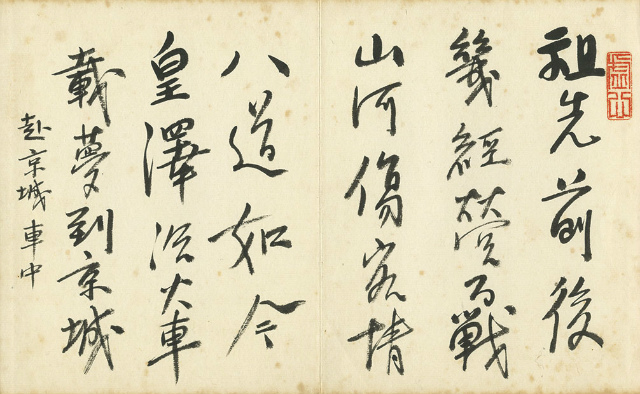 祖先前後
幾經營百戰
山河傷客情
八道如今
皇澤洽火車
載夢到京城
赴京城車中